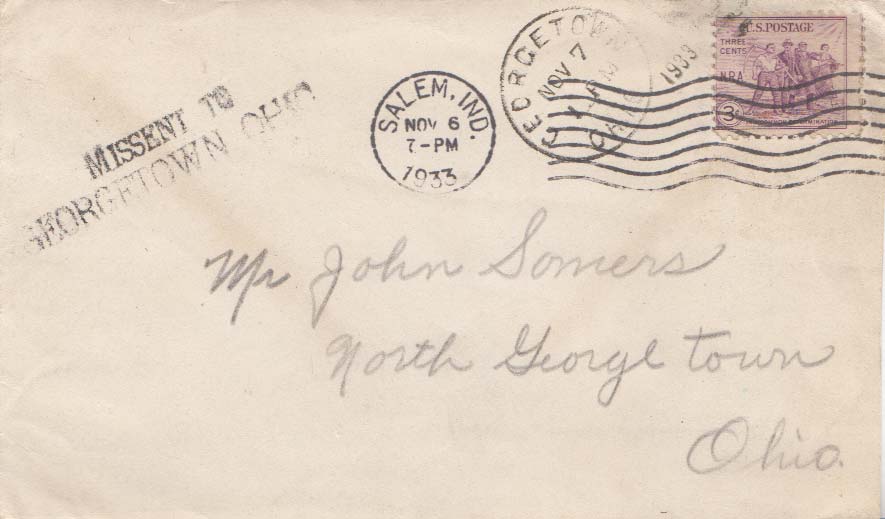 MISSENT TO
GEORGETOWN OHIO
SALEM, IND.
NOV 6
7-PM
1933
GEORGETOWN
NOV 7
1933
OHIO
U.S. POSTAGE
THREE
CENTS
N.R.A.
3¢
Mr John Somers
North George town
Ohio.